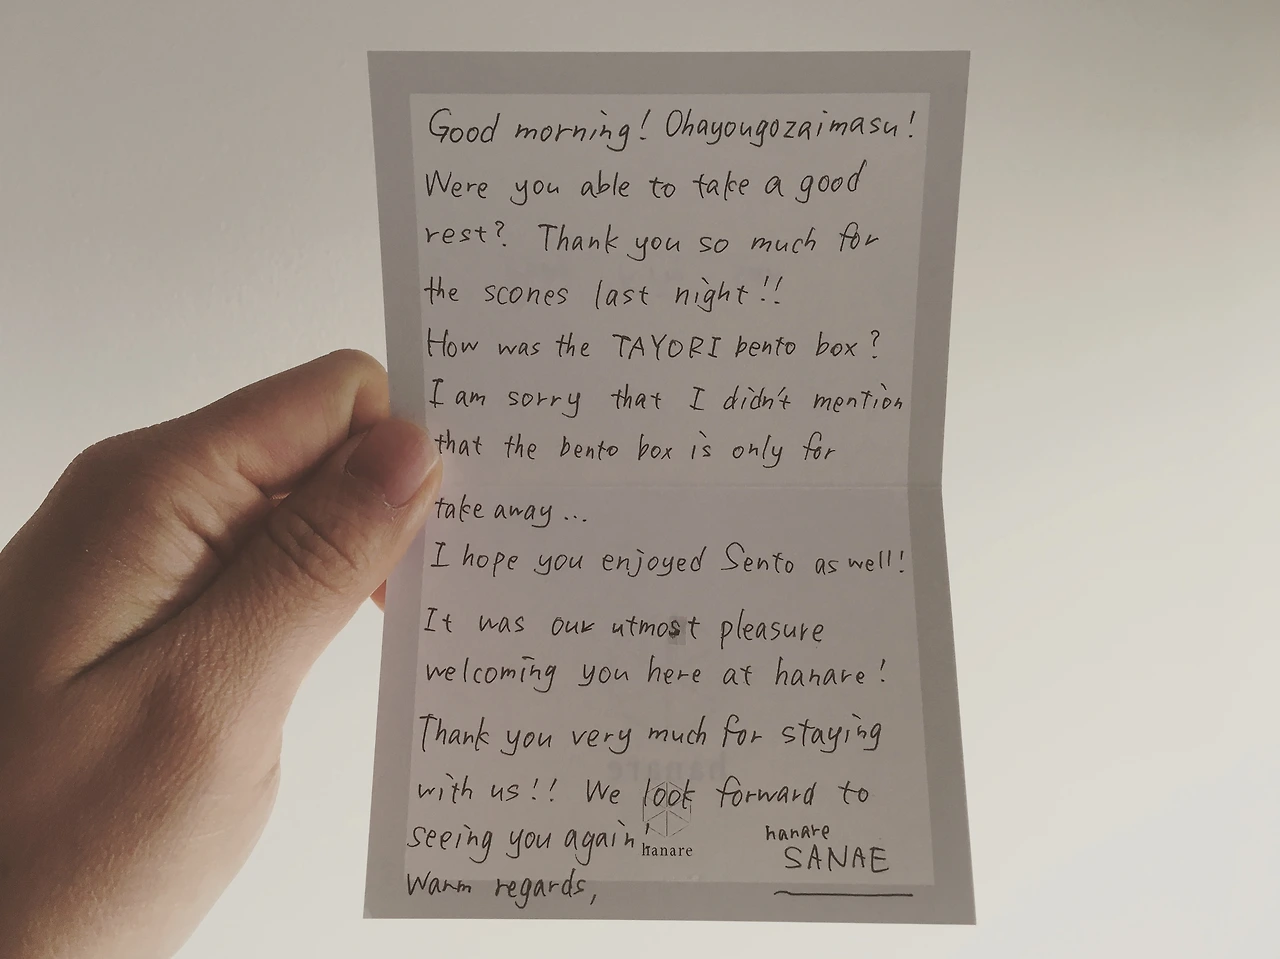 Good morning! Ohayougozaimasu!
Were you able to take a good
rest? Thank you so much for
the scones last night!!
How was the TAYORI bento box?
I am sorry that I didn't mention
that the bento box is only for
take away...
I hope you enjoyed Sento as well!
It was our utmost pleasure
welcoming you here at hanare!
Thank you very much for staying
with us!! We look forward to
seeing you again!
hanare
Warm regards,
hanare
SANAE
hanare